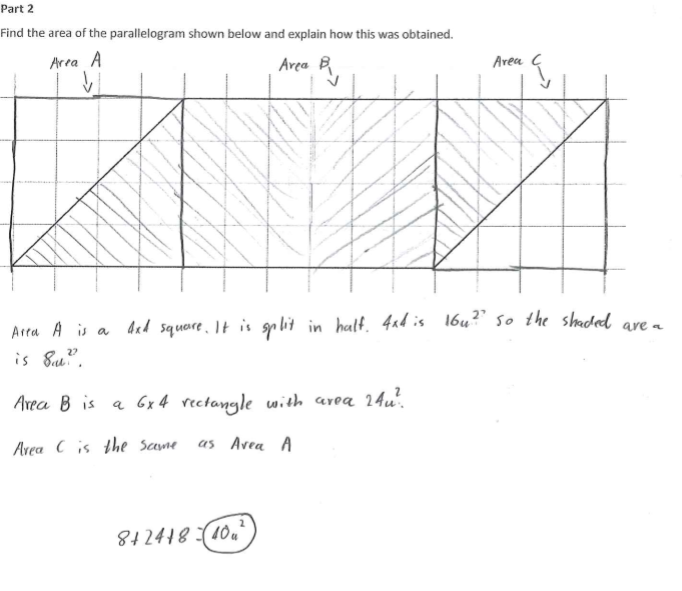 Part 2
Find the area of the parallelogram shown below and explain how this was obtained.
Area A Area B Area C
Area A is a 4x4 square. It is split in half. 4x4 is 16u² so the shaded area
is 8u².
Area B is a 6x4 rectangle with area 24u².
Area C is the same as Area A
8+24+8=40u²